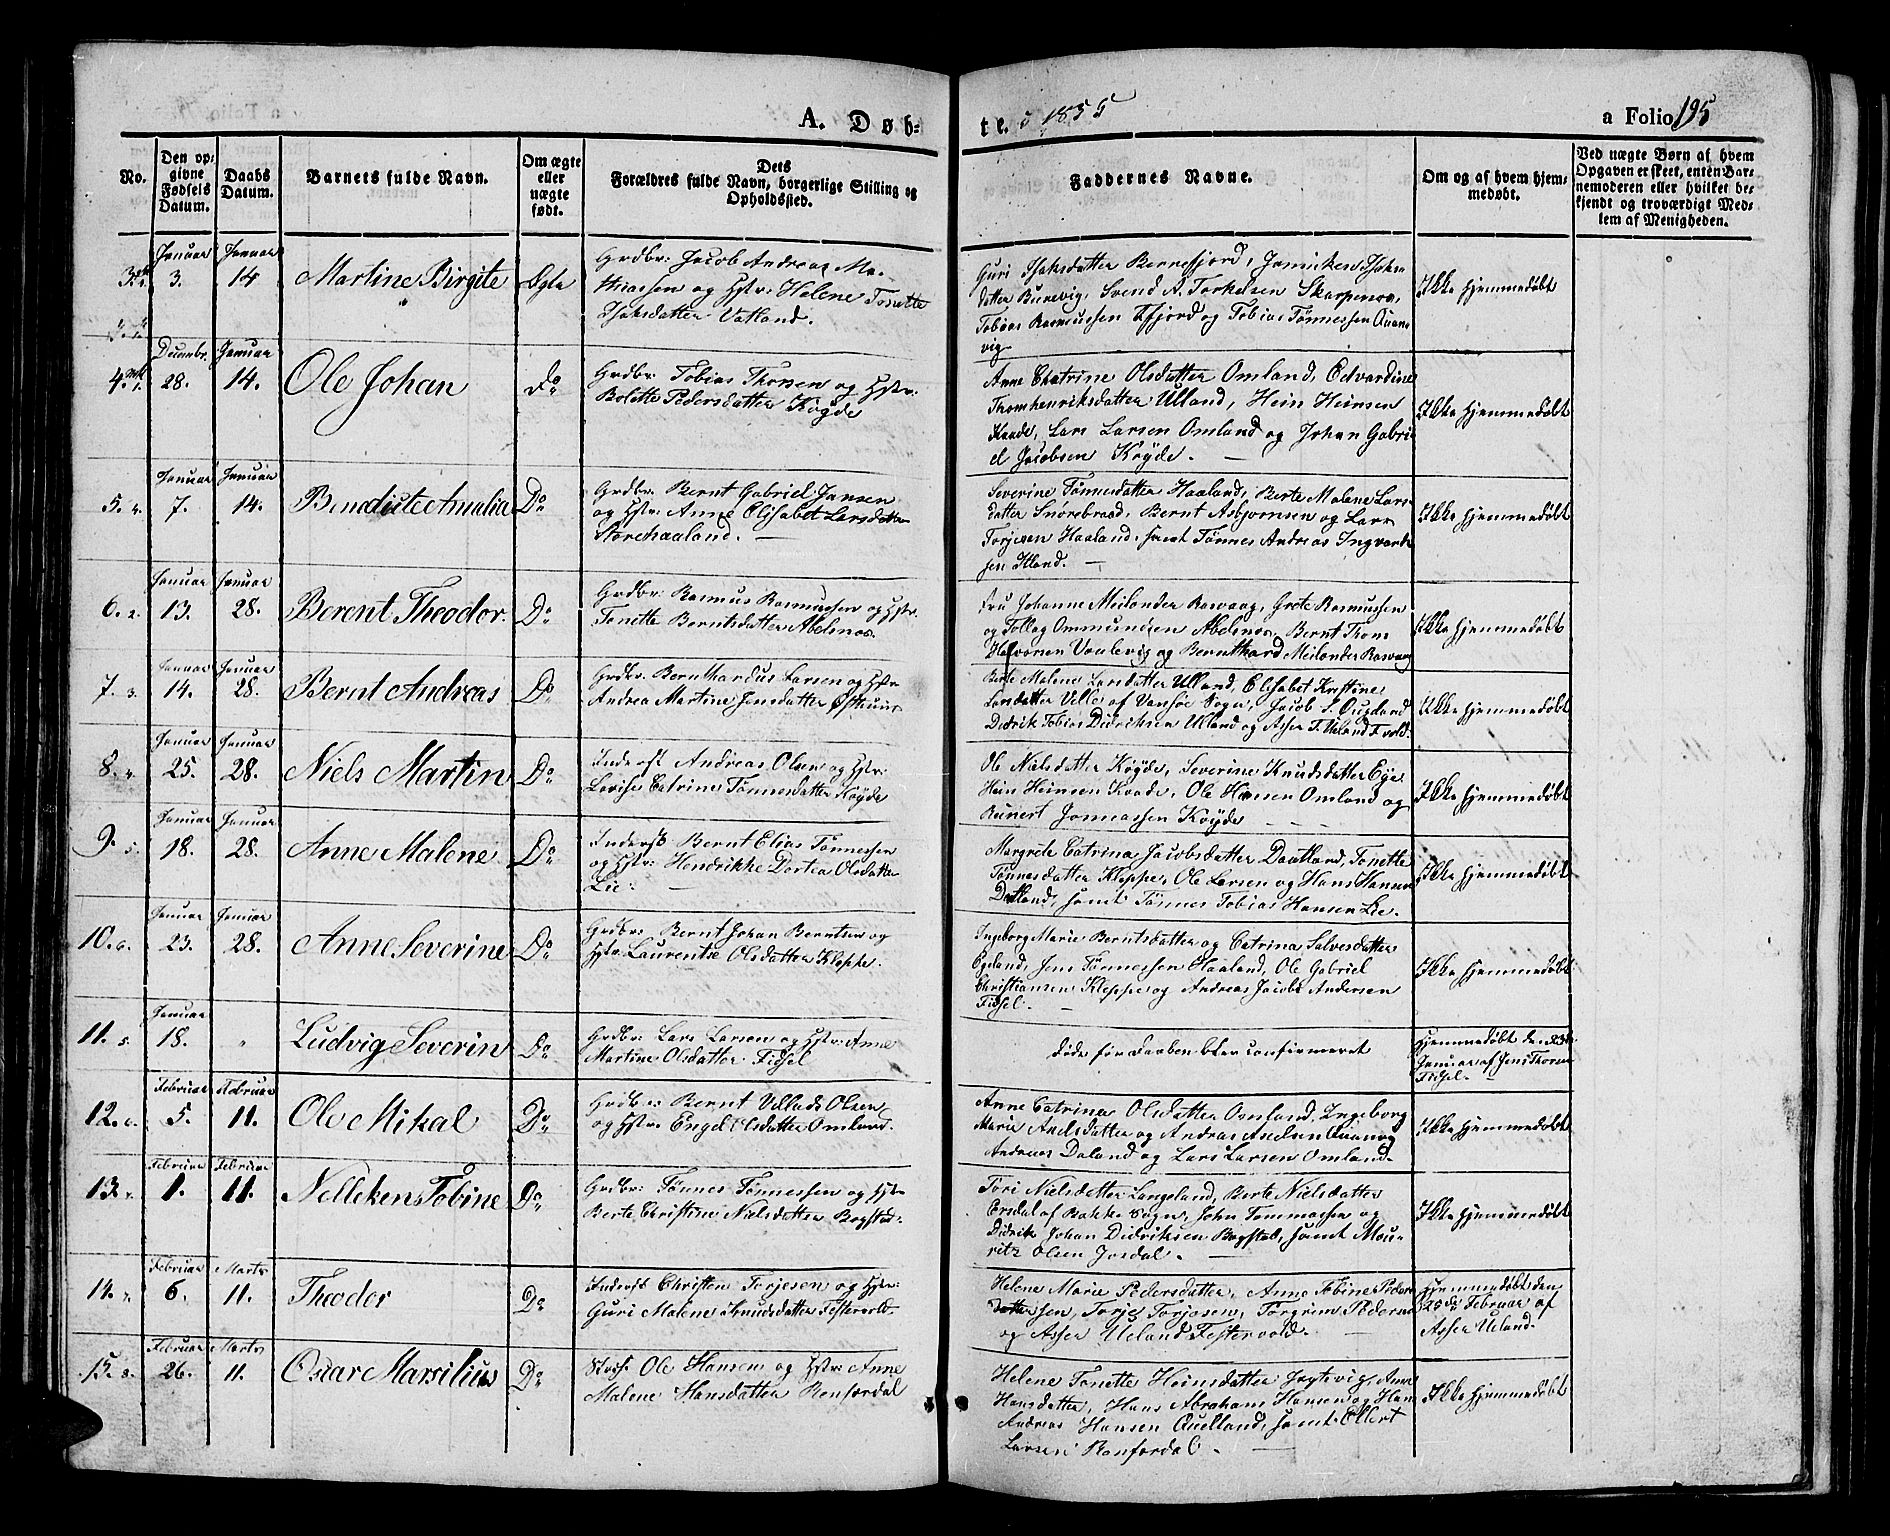 A. Døb-
te. i 1855
a Folio 195
No.
Den op-
givne
Fødsels
Datum.
Daabs
Datum.
Barnets fulde Navn.
Om ægte
eller
uægte
født.
Dets
Forældres fulde Navn, borgerlige Stilling og
Opholdssted.
Faddernes Navne.
Om og af hvem hjem-
medøbt.
Ved uægte Børn af hvem
Opgaven er skeet, enten Bar-
nemoderen eller hvilket be-
kjendt og troværdigt Med-
lem af Menigheden.
3.
Januar
3.
Januar
14
Martine Birgite
Egte
Grdbr: Jacob Andreas Ma-
thiassen og Hstr: Helene Tonette
Isaksdatter Vatland.
Guri Isaksdatter Berrefjord, Jannikken Isaks
datter Bunevig, Svend A. Torkelsen Skarpenes,
Tobias Rasmussen Efjord og Tobias Tønnessen Quane
vig
Ikke hjemmedøbt
4.
Decembr.
28.
Januar
14.
Ole Johan
Do
Grdbr: Tobias Thorsen og Hstr:
Bolette Pedersdatter Köyde
Anne Chatrine Olsdatter Omland, Edvardine
Thomhenriksdatter Ulland, Hein Heinsen
Kaade, Lars Larsen Omland og Johan Gabri
el Jacobsen Köyde. —
Ikke hjemmedøbt
5.
Januar
7.
Januar
14.
Benedicte Amalia
Do
Grdbr: Bernt Gabriel Jansen
og Hstr: Anne Elisabet Larsdatter
Storehaaland. —
Severine Tönnesdatter Haaland, Berte Malene Lars
datter Snorebraad, Bernt Asbjornsen og Lars
Torjesen Haaland, samt Tönnes Andreas Ingvard
sen Iland. —
Ikke hjemmedøbt
6.
Januar
13.
Januar
28.
Berent Theodor.
Do
Grdbr: Rasmus Rasmussen og Hstr.
Tonette Berntsdatter Abelsnes.
Fru Johanne Meilander Rasvaag, Grete Rasmussen
og Tollag Ommundsen Abelsnes, Bernt Thom
Halvorsen og Bernthard Meilander Rasvaag
Ikke hjemmedøbt
7.
Januar
14.
Januar
28.
Bernt Andreas
Do
Grdbr: Bernthardus Larsen og Hstr
Andrea Martine Jensdatter
Berte Malene Larsdatter Ulland, Elisabet Kristine
Larsdatter Velle af Vansöe Sogn, Jacob S. Ougland
Didrik Tobias Didriksen Ulland og Asser T. Ueland
Ikke hjemmedøbt
8.
Januar
25.
Januar
28.
Niels Martin
Do
Inderst Andreas Olsen og Hstr:
Lovise Catrine Tönnesdatter Köyde
Ole Nielsdatter Köyde, Severine Knudsdatter Eye
Hein Heinsen Kaade, Ole Hansen Omland og
Reinert Jonnassen Köyde
Ikke hjemmedøbt
9.
Januar
18.
Januar
28.
Anne Malene
Do
Inderst Bernt Elias Tönnessen
og Hstr: Hendrikke Dortea Olsdatter
Lie. —
Margrete Catrina Jacobsdatter Daatland, Tonette
Tönnesdatter Kleppe, Ole Larsen og Hans Hansen
Datland, samt Tönnes Tobias Hansen Lie.
Ikke hjemmedøbt
10.
Januar
23.
Januar
28.
Anne Severine
Do
Grdbr: Bernt Johan Berntsen og
Hstr: Laurentse Olsdatter Kleppe.
Ingeborg Marie Berntsdatter og Catrina Salvesdatter
Egeland, Jens Tönnessen Haaland, Ole Gabriel
Christiansen Kleppe og Andreas Jacob Andersen
Fidsel.
Ikke hjemmedøbt
11.
Januar
18.
"
Ludvig Severin
Do
Grdbr: Lars Larsen og Hstr: Anne
Martine Olsdatter Fidsel
Döde för Daaben blev confirmeret
Hjemmedöbt den 23de
Januar af Jens Thorsen
Fidsel. —
12.
Februar
5.
Februar
11.
Ole Mikal
Do
Grdbr: Bernt Villads Olsen
og Hstr: Engel Olsdatter Omland.
Anne Catrine Olsdatter Omland, Ingeborg
Marie Axelsdatter og Andreas Axelsen
Andreas Daland og Lars Larsen Omland.
Ikke hjemmedøbt
13.
Februar
1.
Februar
11.
Nelleken Tobine
Do
Grdbr: Tönnes Tönnessen og Hstr
Berte Christine Nielsdatter Bogstad.
Tori Nielsdatter Langeland, Berte Nielsdatter
Ersdal af Bakke Sogn, John Tommassen og
Didrik Johan Didriksen Bogstad, samt Mou-
ritz Olsen Josdal. —
Ikke hjemmedøbt
14.
Februar
6.
Marts
11.
Theodor
Do
Inderst Christen Torjesen og Hstr:
Guri Malene Knudsdatter Festervold.
Helene Marie Pedersdatter, Anne Tobine Peder
sen, Torje Torjesen, Torgrim Pedersen
og Asser Ueland Festervold. —
Hjemmedöbt den
25de Februar af
Asser Ueland.
15.
Februar
26.
Marts
11.
Oscar Marsilius
Do
Ole Hansen og Hstr: Anne
Malene Hansdatter Renfordal
Helene Tonette Heinsdatter Jegtvig, Anne
Hansdatter, Hans Abraham Hansen og Hans
Andreas Hansen Quelland, samt Ellert
Larsen Renfordal. —
Ikke hjemmedøbt